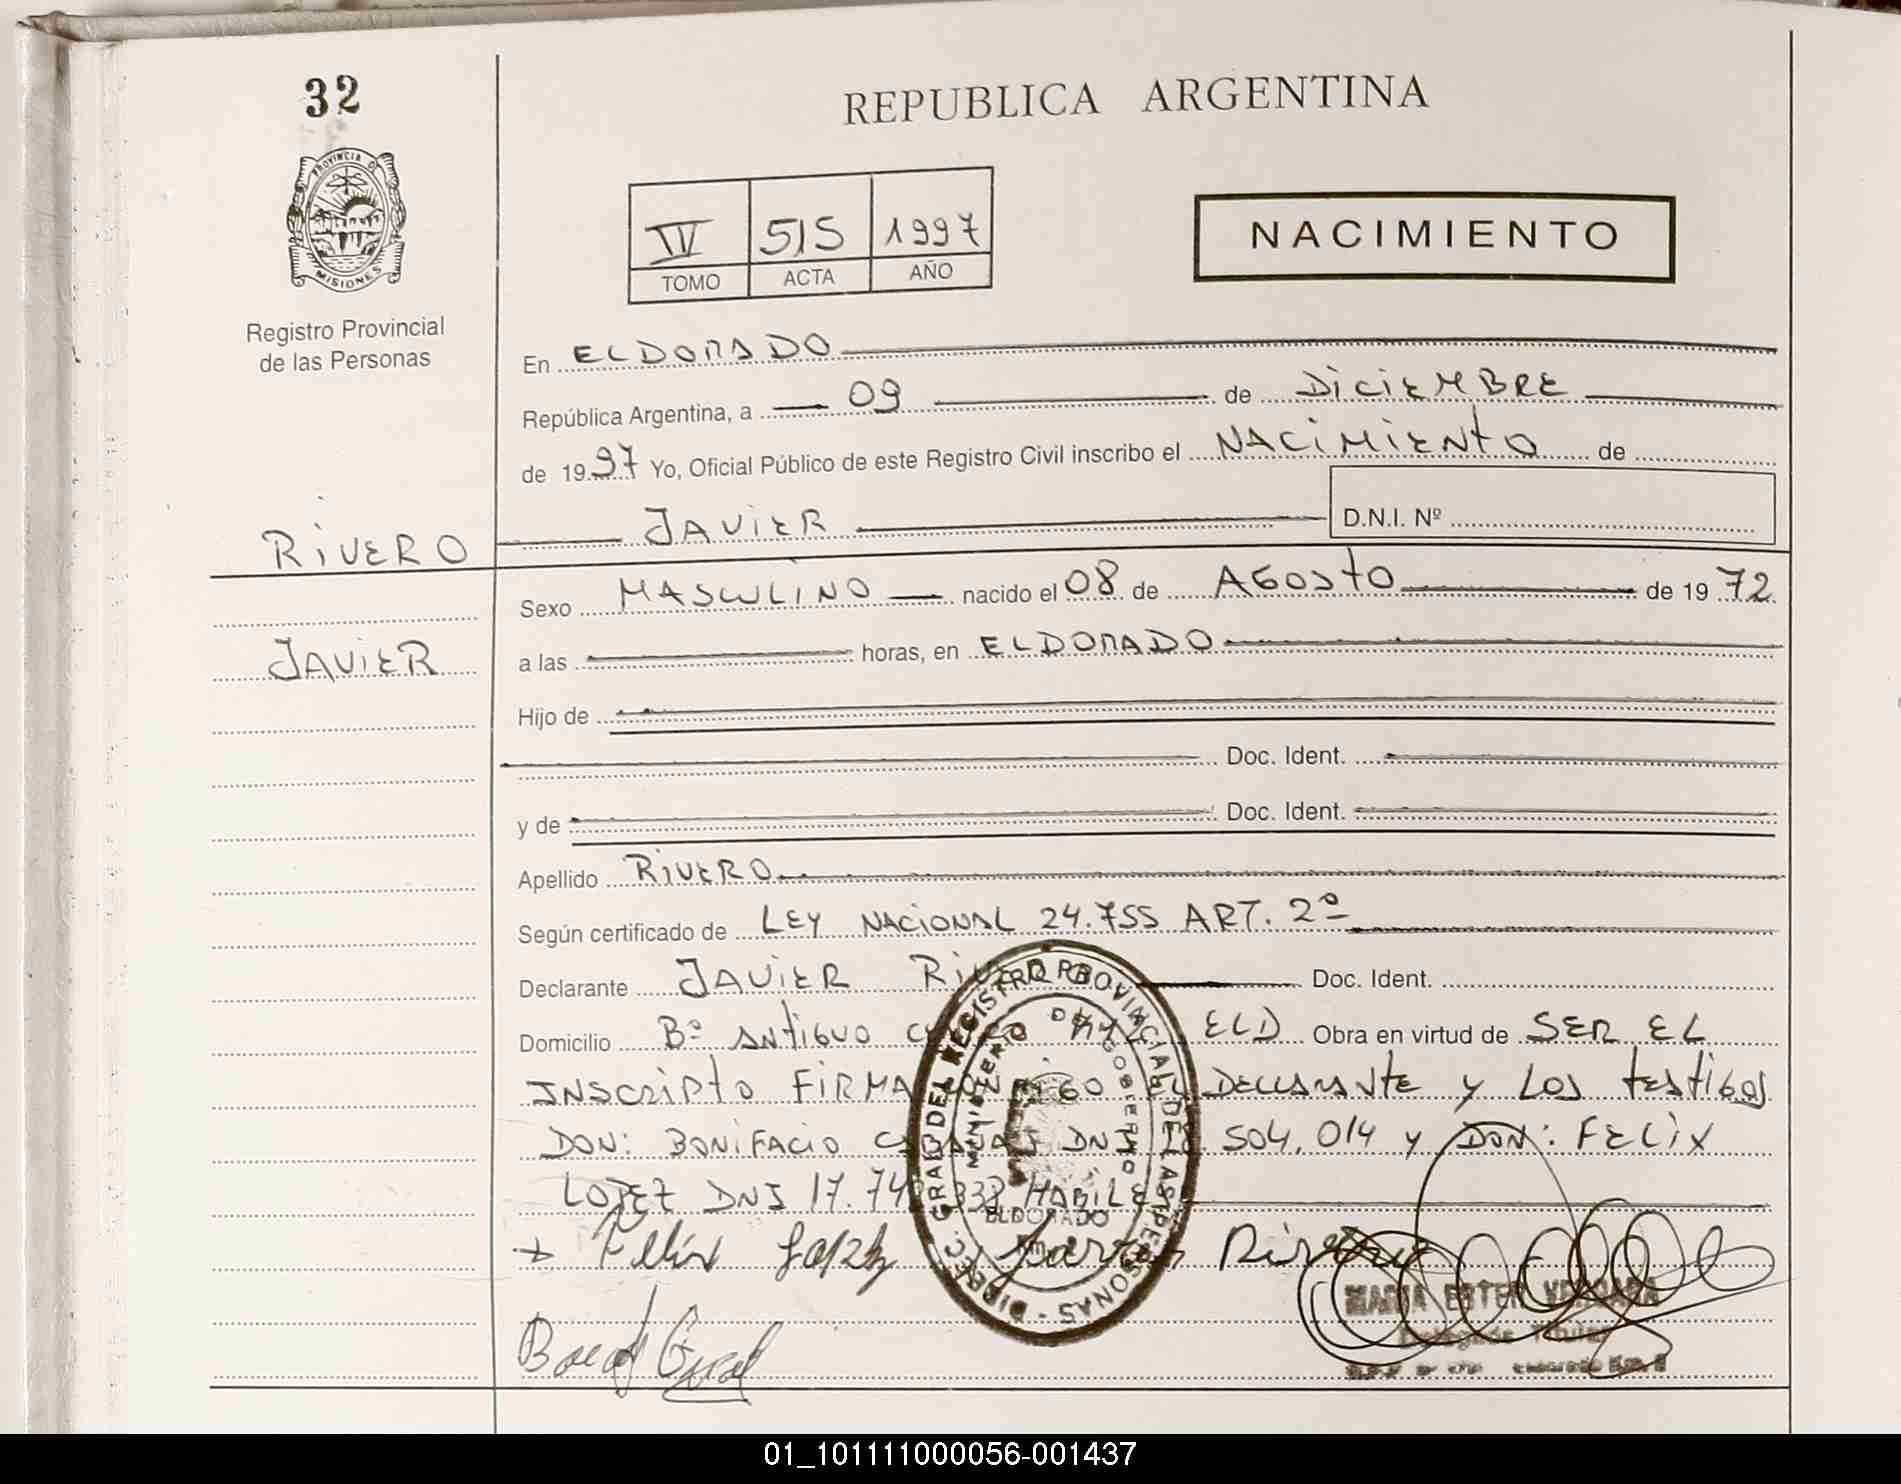 32
REPUBLICA ARGENTINA
PROVINCIA DE
MISIONES
Registro Provincial
de las Personas
IV 515 1997
TOMO ACTA AÑO
NACIMIENTO
En ELDORADO
República Argentina, a 09 de DICIEMBRE
de 1997 Yo, Oficial Público de este Registro Civil inscribo el NACIMIENTO de
JAVIER D.N.I. Nº
RIVERO
JAVIER
Sexo MASCULINO nacido el 08 de AGOSTO de 1972
a las horas, en ELDORADO
Hijo de
Doc. Ident.
y de Doc. Ident.
Apellido RIVERO
Según certificado de LEY NACIONAL 24.755 ART. 2º
Declarante JAVIER RIVERO Doc. Ident.
Domicilio Bº ANTIGUO ELD Obra en virtud de SER EL
INSCRIPTO FIRMA CONMIGO EL DECLARANTE Y LOS TESTIGOS
DON: BONIFACIO DNI 504.014 Y DON: FELIX
LOPEZ DNI 17.74 338 HABILES
Felix Lopez Javier Rivero
DIREC. GRAL DEL REGISTRO PROVINCIAL DE LAS PERSONAS
MINISTERIO DE GOBIERNO
ELDORADO
MARIA ESTER VERGARA
Delegada Titular
01_101111000056-001437